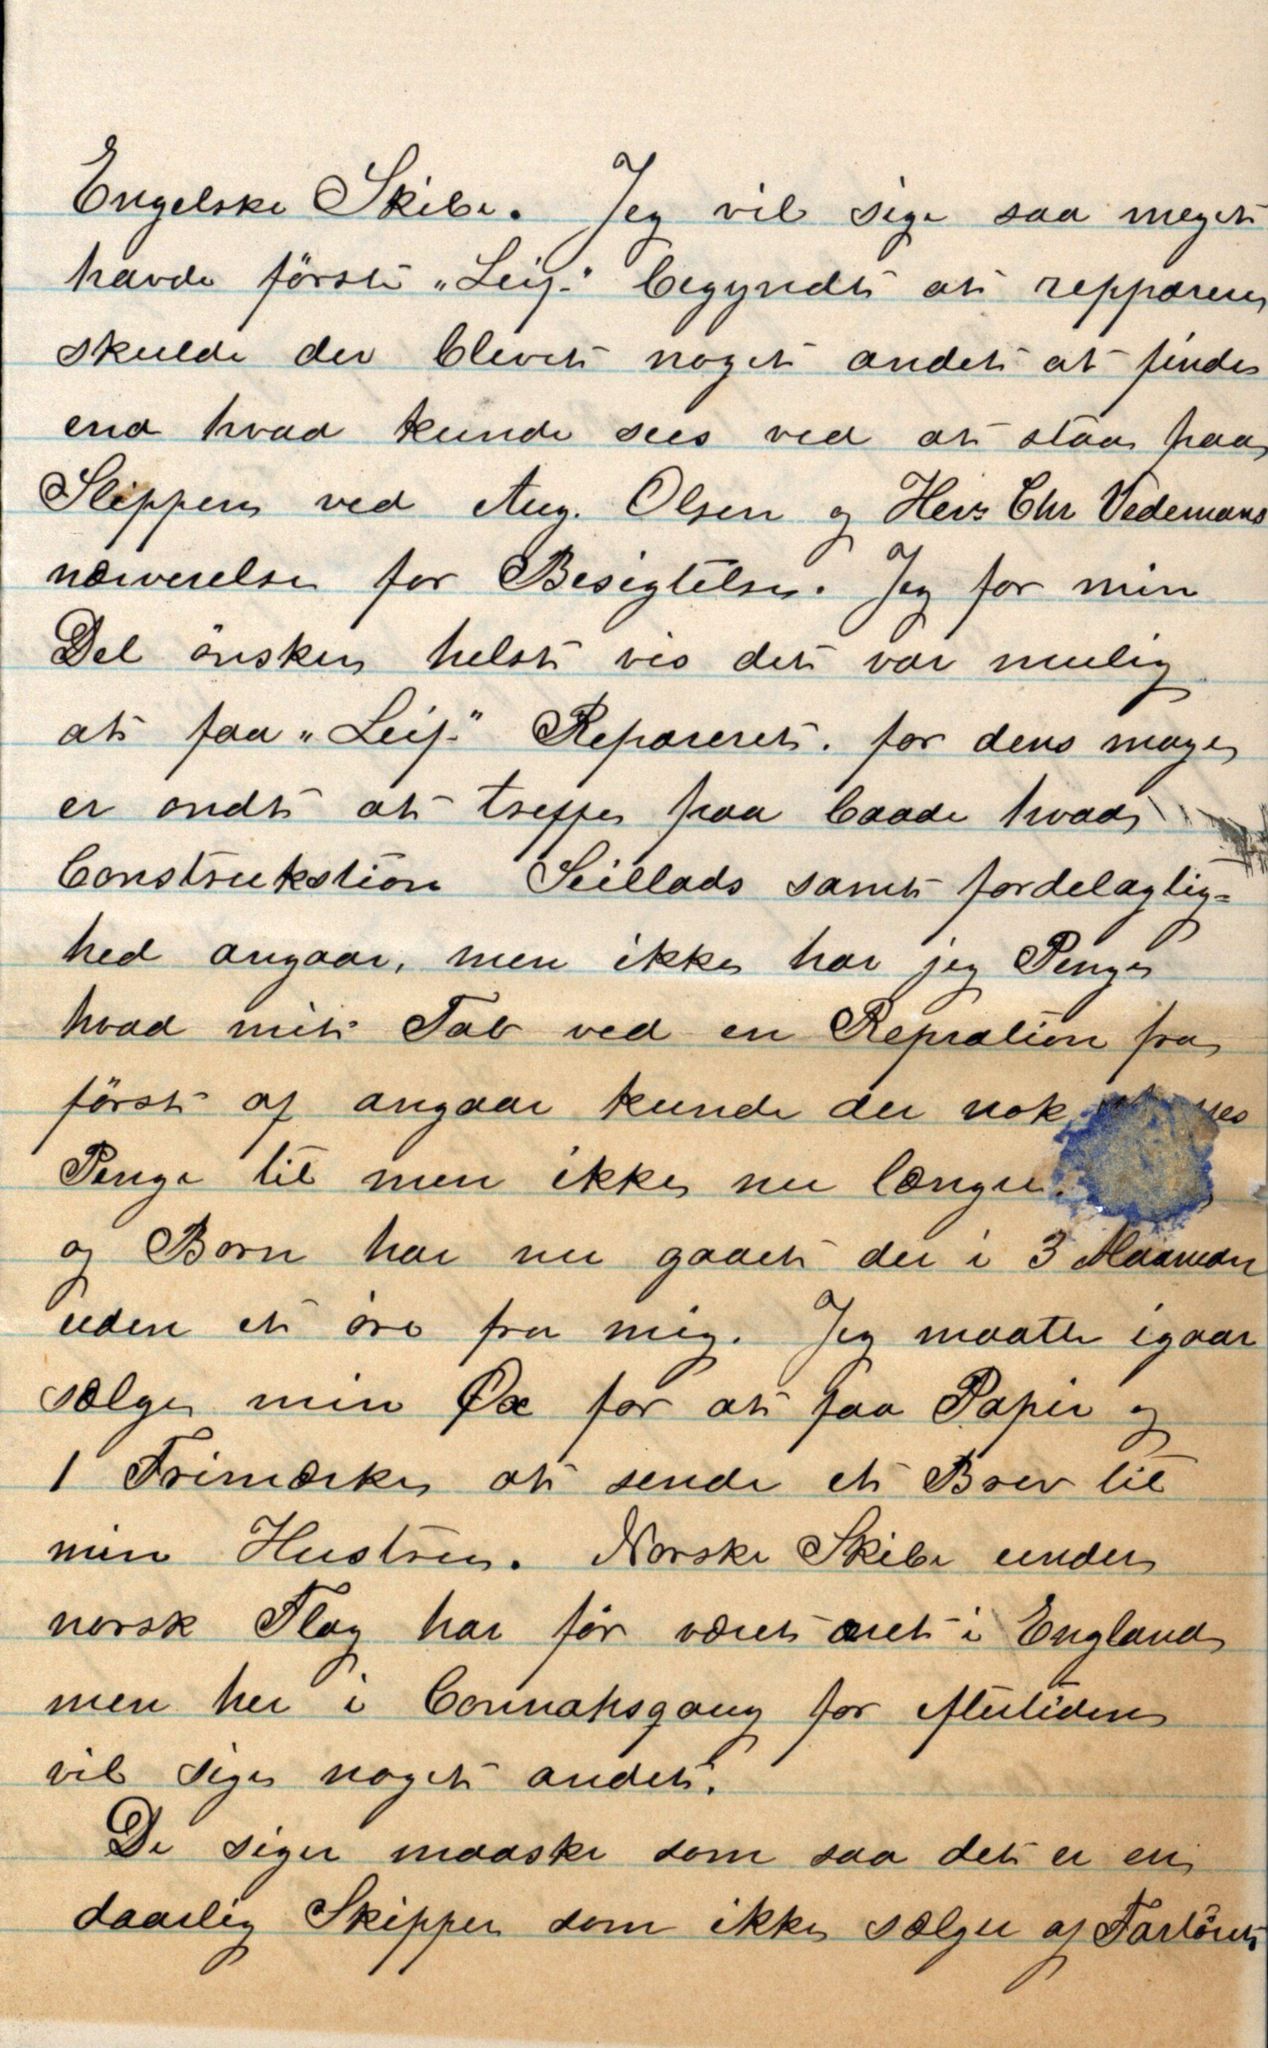 Engelske Skibe. Jeg vil sige saa meget
havde først "Leif" begyndt at repparere
skulde der blevet noget andet at finde
end hvad kunde sees ved at staa paa
Slippen ved Aug. Olsen og Herr Chr Vedemans
nærverelse for Besigtelse. Jeg for min
Del ønsker helst vis det var mulig
at faa "Leif" Repareret. for dens mage
er ondt at treffe paa baade hvad
Construkstion Seillads samt fordelagtig=
hed angaar, men ikke har jeg Penge
hvad mit Tab ved en Repration fra
først af angaar kunde der nok
Penge til men ikke nu længer.
og Born har nu gaaet der i 3 Maaneder
uden et øre fra mig. Jeg maatte igaar
sælge min Øx for at faa Papir og
1 Frimærke at sende et Brev til
min Hustru. Norske Skibe under
norsk Flag har før været æret i England
men her i Connahsqauy for eftertiden
vil siges noget andet.
De siger maaske som saa det er en
daarlig Skipper som ikke sælger af Fartöiet